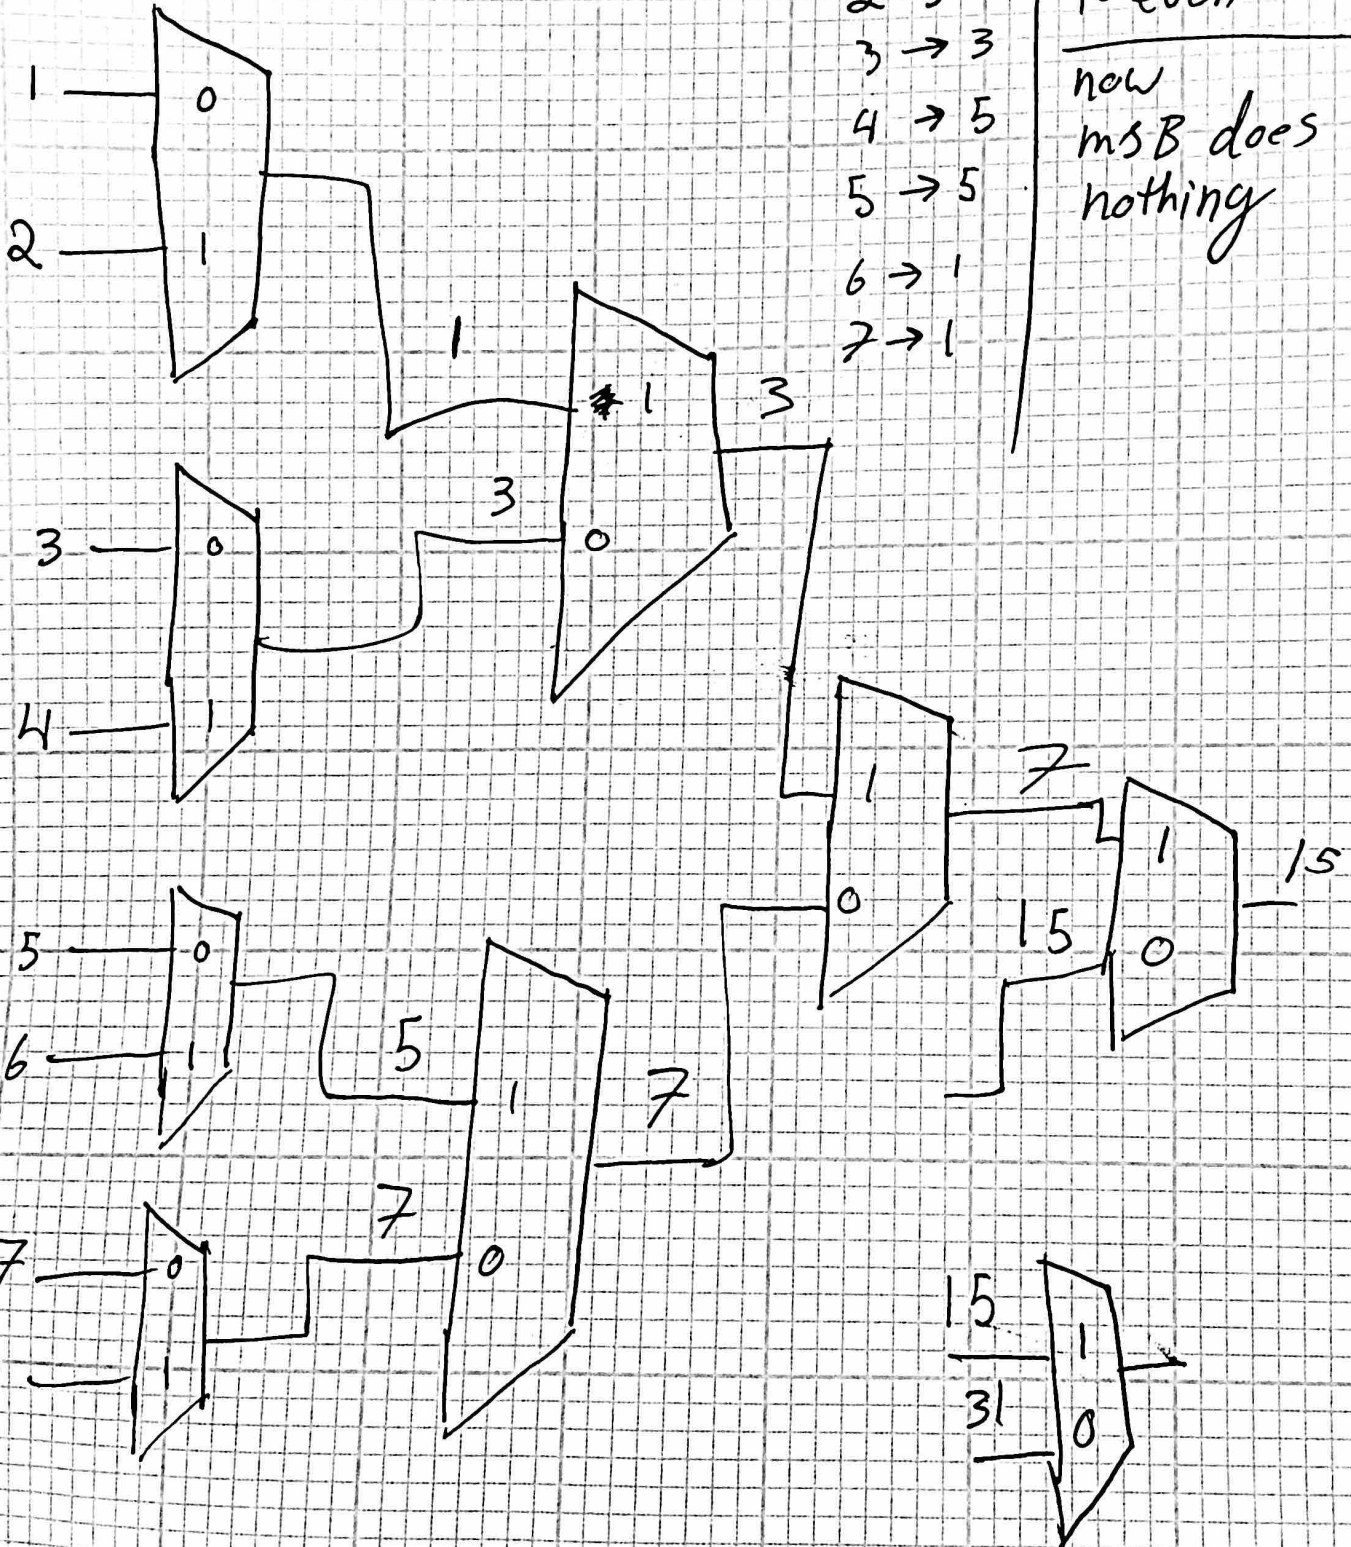 3 → 3
4 → 5
5 → 5
6 → 1
7 → 1
now
msB does
nothing
1
0
2
1
1
1
3
3
3
0
0
4
1
1
7
1
15
0
15
0
5
0
6
1
5
1
7
7
7
0
0
1
15
1
31
0